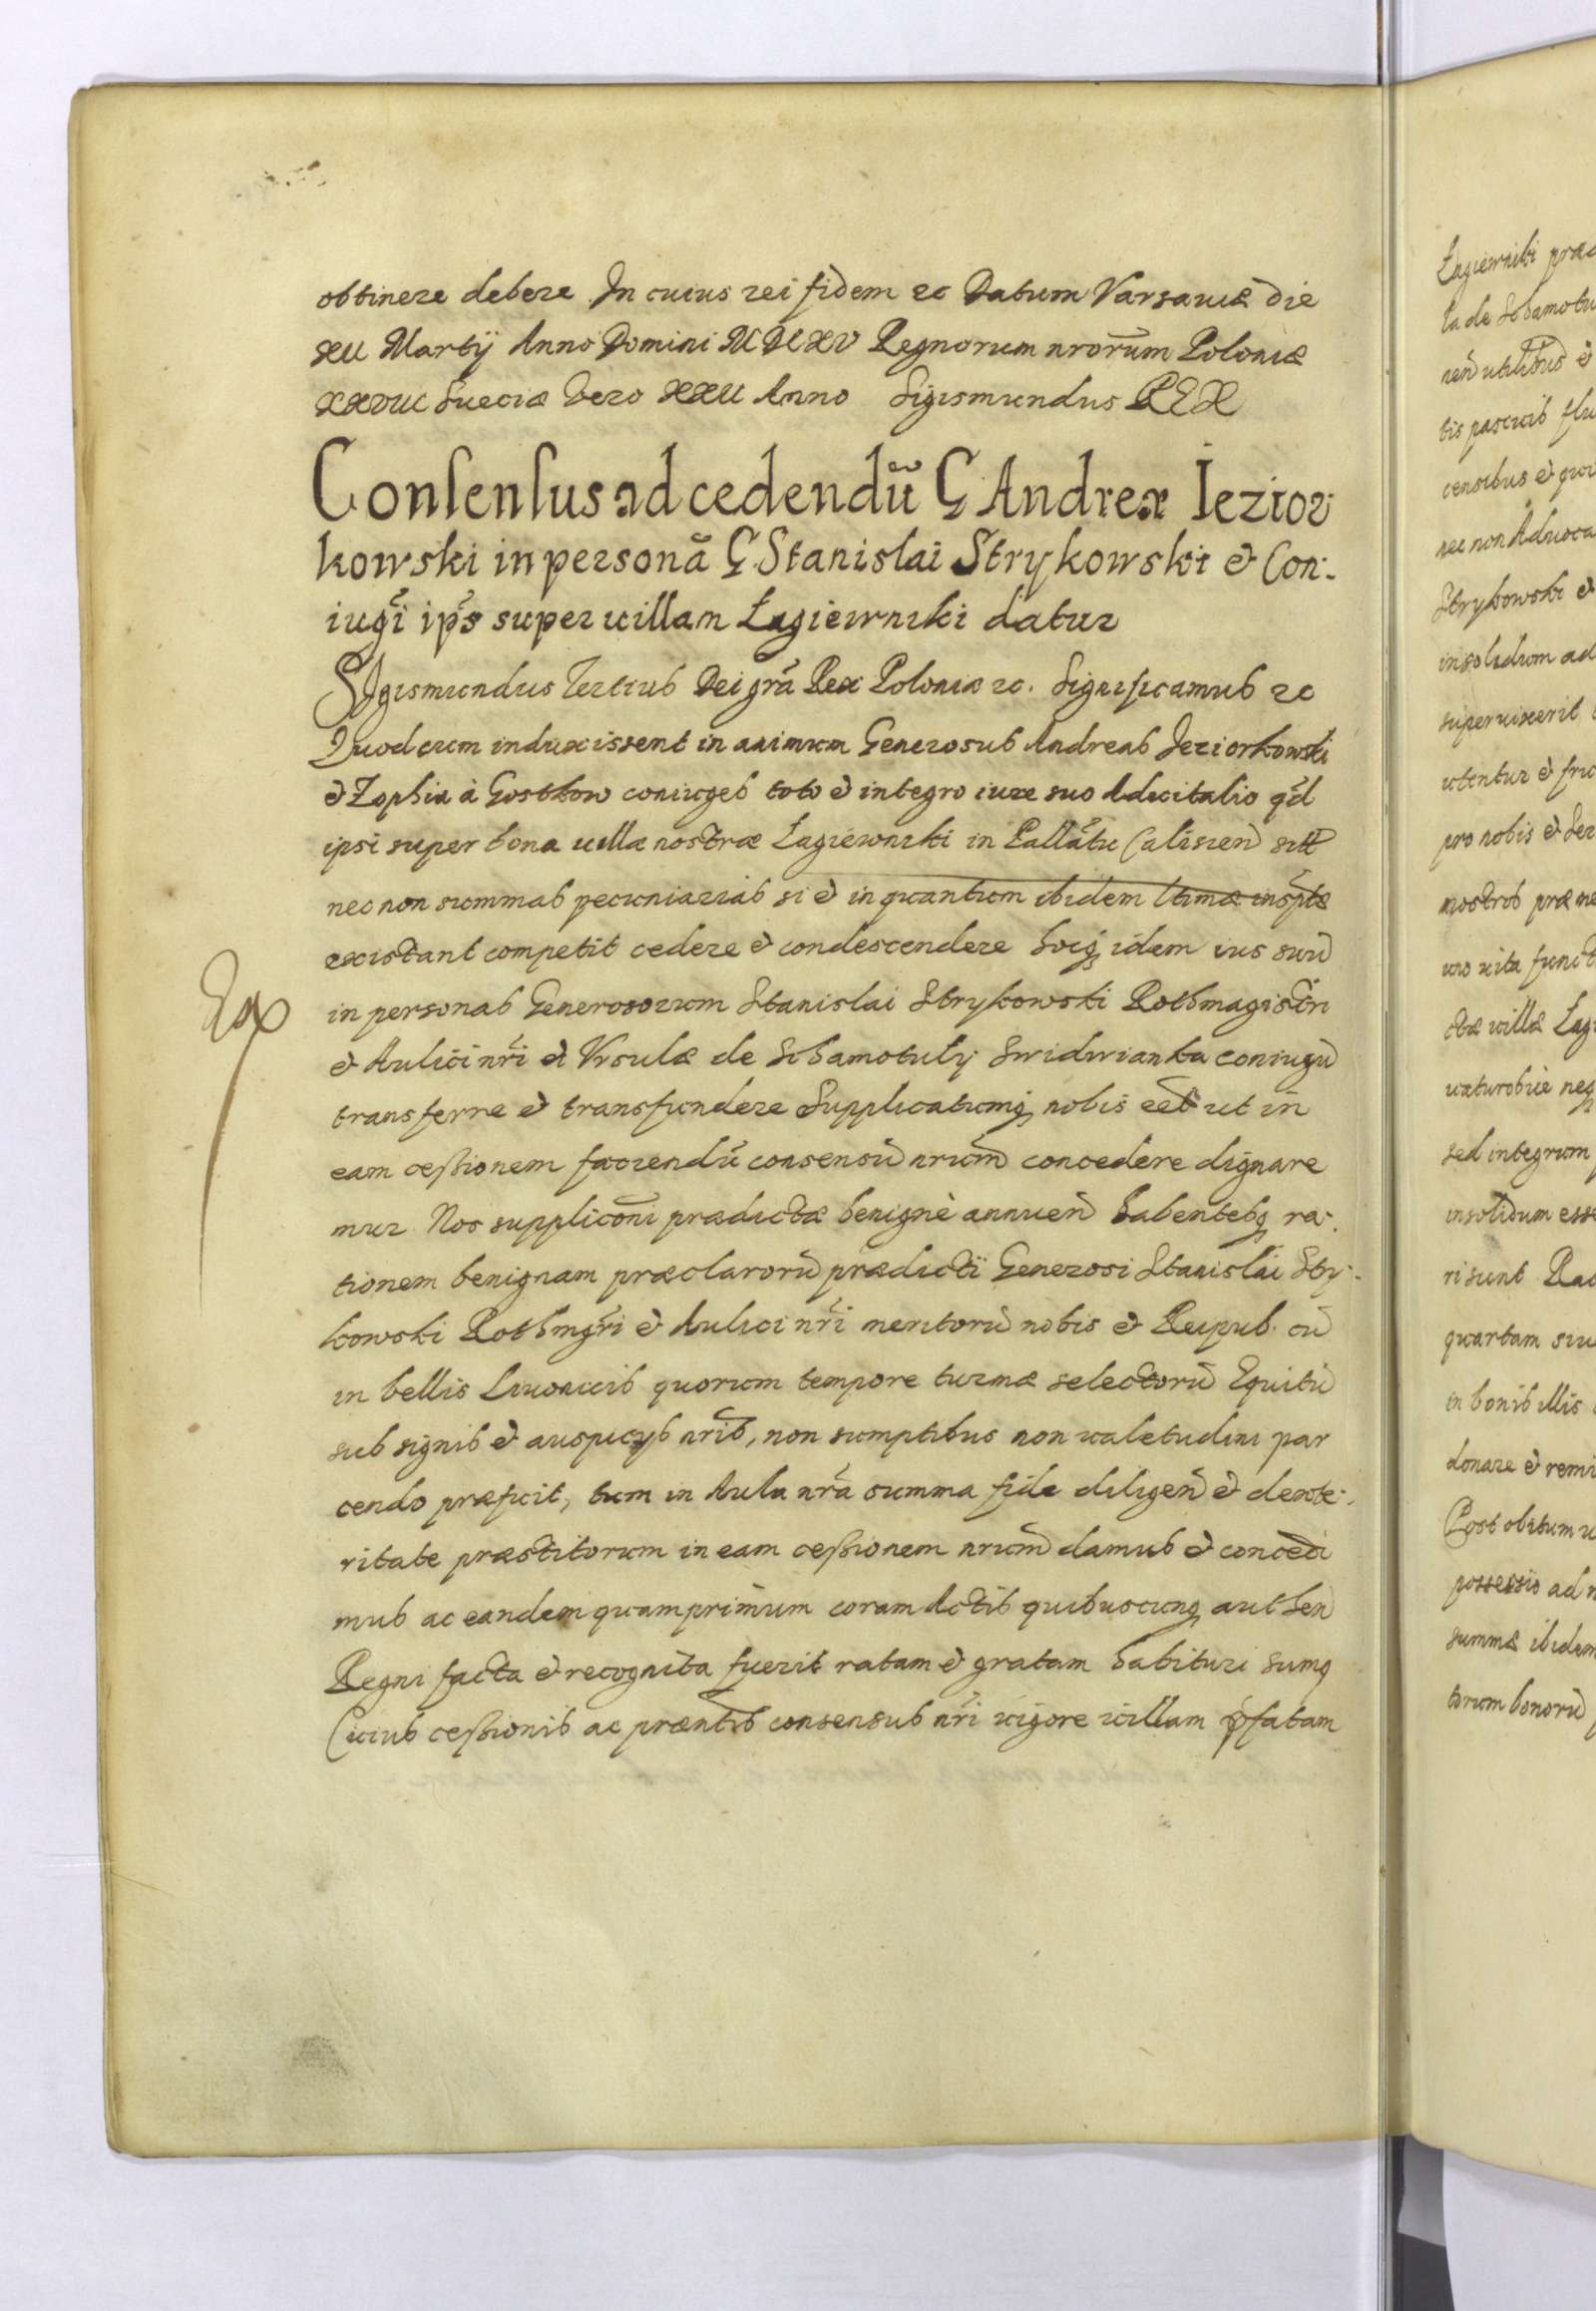 obtinere debere In cuius rei fidem ec Datum Varsauiæ die
XII Martij Anno Domini MDCXV Regnorum nrorum Poloniæ
XXVIII Sueciæ Vero XXII Anno Sigismundus REX
Consensus ad cedendū G Andreæ Iezior
kowski in personā G. Stanislai Strykowski et Con:
iugī ips super uillam Łagiewniki datur
Sigismundus Tertius Dei grā Rex Poloniæ ec. Significamus ec
Quod cum induxissent in animum Generosus Andreas Jeziorkowski
et Zophia à Gostkow coniuges toto et integro iure suo Aduitalio qd
ipsi super bona uillæ nostræ Łagiewniki in Pallātu Calisien sitt
nec non summas pecuniarias si et in quantum ibidem ltimæ inscptæ
existant competit cedere et condescendere hocq idem ius suū
in personas Generosorum Stanislai Strykowski Rothmagistri
et Aulici nri et Vrsulæ de Schamotuly Swidwianka coniugū
transferre et transfundere Supplicatumq nobis eēt ut in
eam cessionem faciendū consensū nrum concedere dignare
mur Nos supplicōni prædictæ benignè annuen habentesq ra:
tionem benignam præclarorū prædicti Generosi Stanislai Stry:
kowski Rothmgri et Aulici nri meritorū nobis et Reipub. cū
in bellis Liuonicis quorum tempore turmæ selectorū Equitū
sub signis et auspicijs nris, non sumptibus non ualetudini par
cendo præficit, tum in Aula nra summa fide diligen et dexte:
ritate præstitorum in eam cessionem nrum damus et concedi
mus ac eandem quamprimum coram Actis quibuscunq authen
Regni facta et recognita fuerit ratam et gratam habituri sumq
Cuius cessionis ac præntis consensus nri uigore uillam pfatam
Łagiewniki præ
la de Schamotu
nen utilibus et
tis pascuis flu
censibus et
nec non Aduoca
Strykowski et
insolidum ad
superuixerit
utentur et fru
pro nobis et Ser
nostris præ
uo uita funct
ctæ uillæ Łag
neq
sed integrum
insolidum esse
ri sunt
quartam siu
in bonis illis
donare et remi
Post obitum
possessio ad
summæ ibidem
torum bonorū